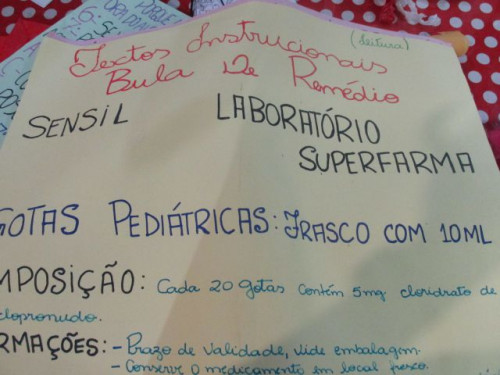 (leitura)
Textos Instrucionais
Bula De Remédio
SENSIL LABORATÓRIO
SUPERFARMA
GOTAS PEDIÁTRICAS: FRASCO COM 10ML
MPOSIÇÃO: Cada 20 gotas contém 5mg cloridrato de
clopronudo.
RMAÇÕES: - Prazo de validade, vide embalagem.
- Conserve o medicamento em local fresco